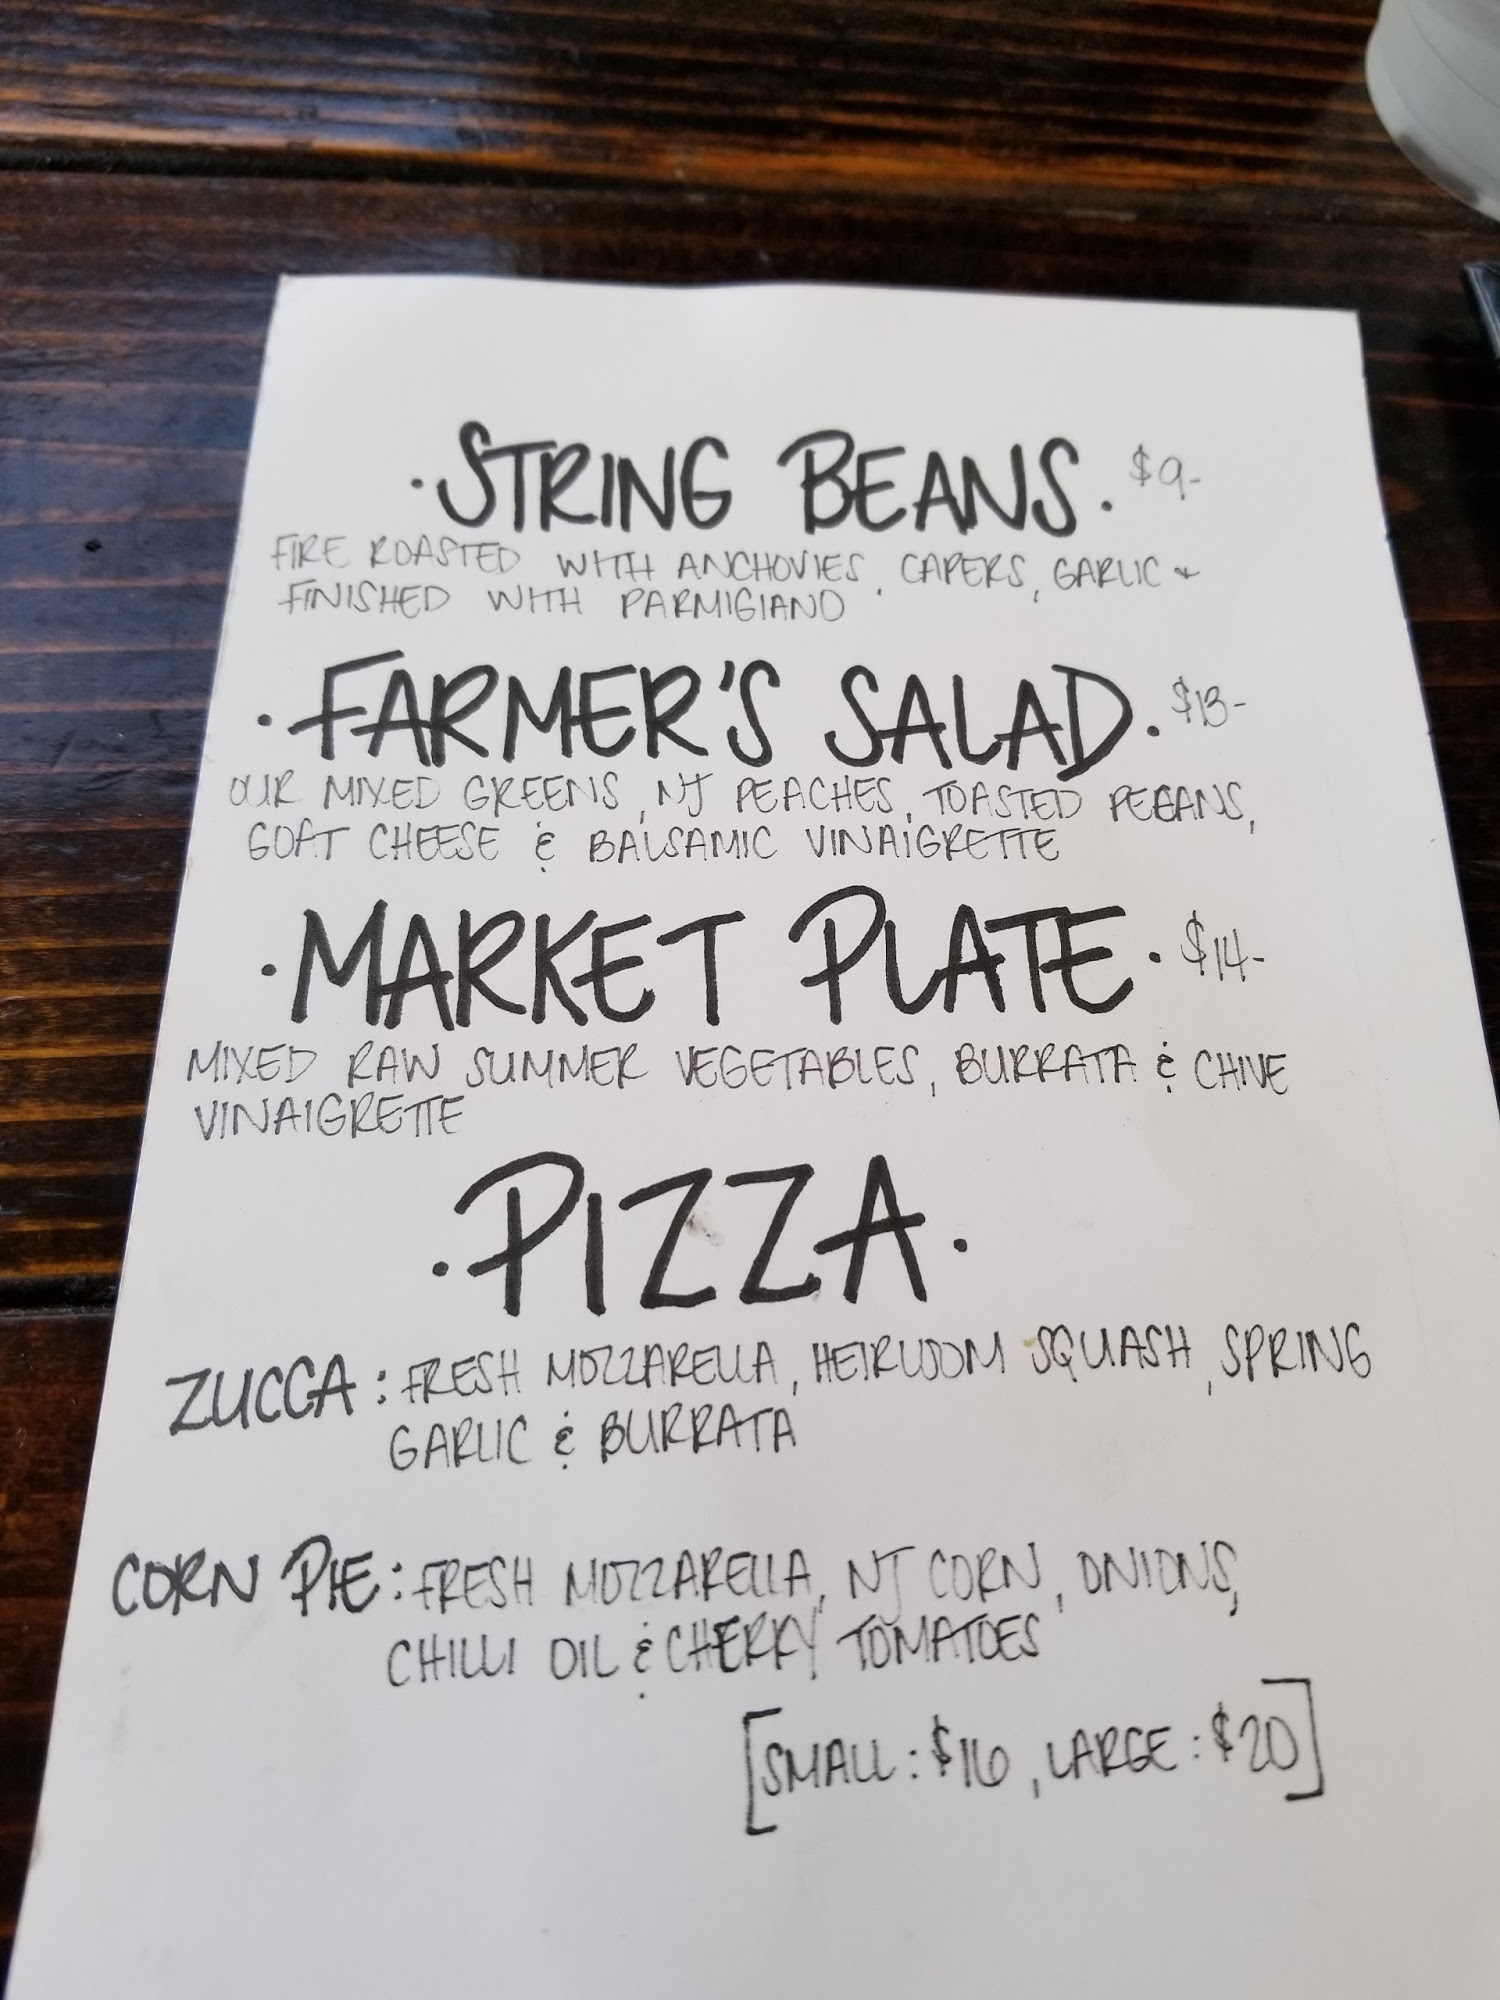 ·STRING BEANS. $9-
FIRE ROASTED WITH ANCHOVIES, CAPERS, GARLIC +
FINISHED WITH PARMIGIANO
·FARMER'S SALAD. $13-
OUR MIXED GREENS, NJ PEACHES, TOASTED PECANS,
GOAT CHEESE & BALSAMIC VINAIGRETTE
·MARKET PLATE· $14-
MIXED RAW SUMMER VEGETABLES, BURRATA & CHIVE
VINAIGRETTE
·PIZZA·
ZUCCA: FRESH MOZZARELLA, HEIRLOOM SQUASH, SPRING
GARLIC & BURRATA
CORN PIE: FRESH MOZZARELLA, NJ CORN, ONIONS,
CHILLI OIL & CHERRY TOMATOES
[SMALL: $16, LARGE: $20]